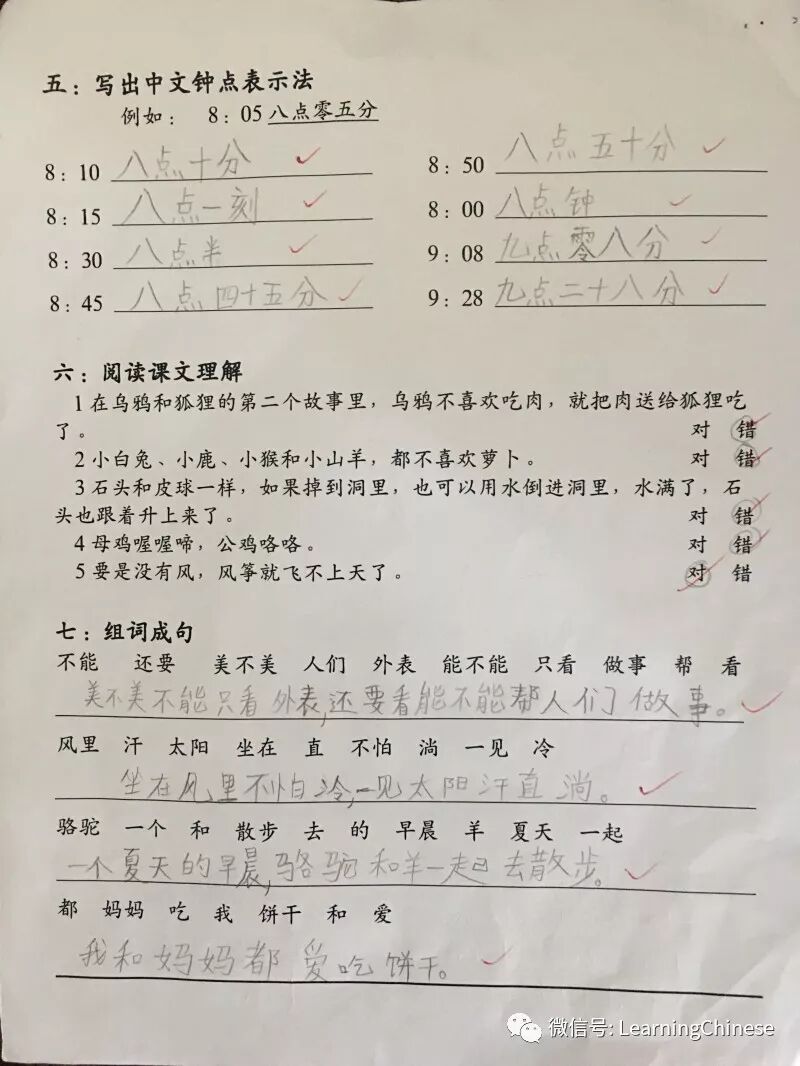 五：写出中文钟点表示法
例如： 8：05 八点零五分
8：10 八点十分 8：50 八点五十分
8：15 八点一刻 8：00 八点钟
8：30 八点半 9：08 九点零八分
8：45 八点四十五分 9：28 九点二十八分
六：阅读课文理解
1 在乌鸦和狐狸的第二个故事里，乌鸦不喜欢吃肉，就把肉送给狐狸吃
了。 对 错
2 小白兔、小鹿、小猴和小山羊，都不喜欢萝卜。 对 错
3 石头和皮球一样，如果掉到洞里，也可以用水倒进洞里，水满了，石
头也跟着升上来了。 对 错
4 母鸡喔喔啼，公鸡咯咯。 对 错
5 要是没有风，风筝就飞不上天了。 对 错
七：组词成句
不能 还要 美不美 人们 外表 能不能 只看 做事 帮 看
美不美不能只看外表,还要看能不能帮人们做事。
风里 汗 太阳 坐在 直 不怕 淌 一见 冷
坐在风里不怕冷,一见太阳汗直淌。
骆驼 一个 和 散步 去 的 早晨 羊 夏天 一起
一个夏天的早晨,骆驼和羊一起去散步。
都 妈妈 吃 我 饼干 和 爱
我和妈妈都爱吃饼干。
微信号: LearningChinese